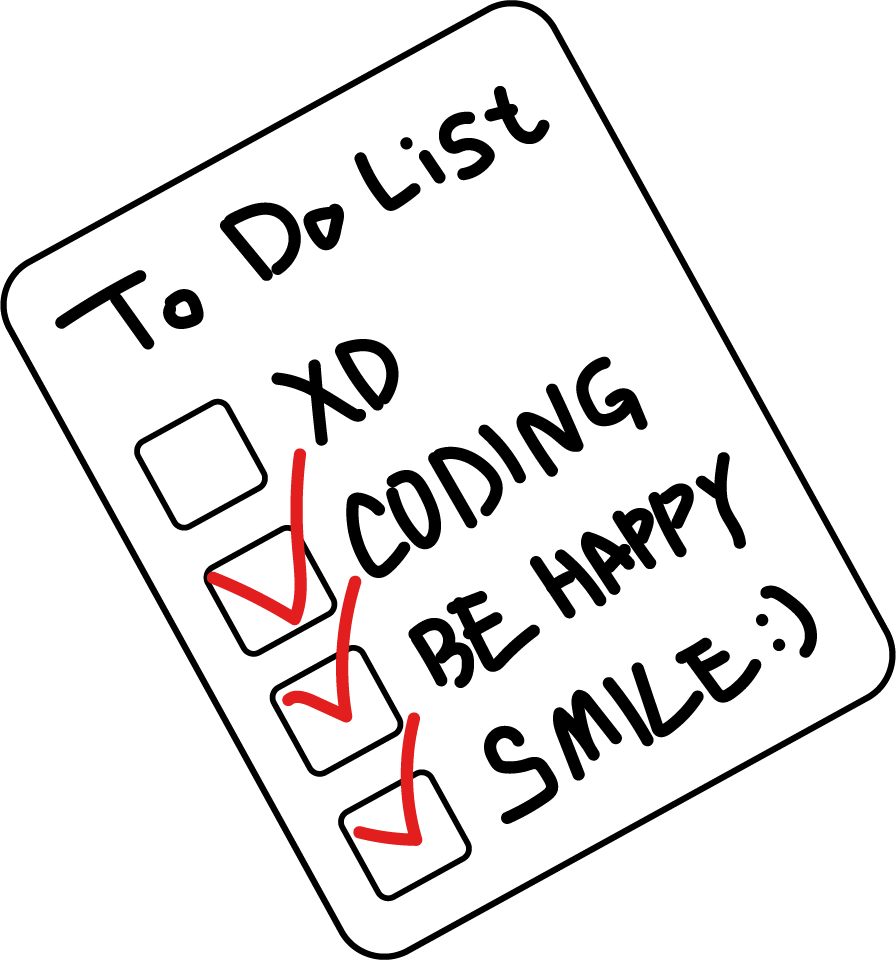 To Do List
XD
CODING
BE HAPPY
SMILE :)